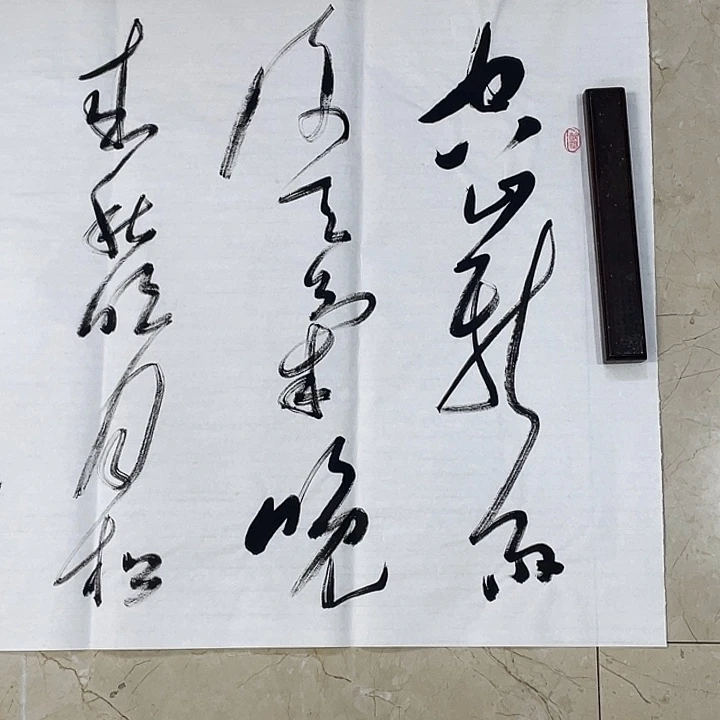 空山新雨
後天氣晚
来秋明月松